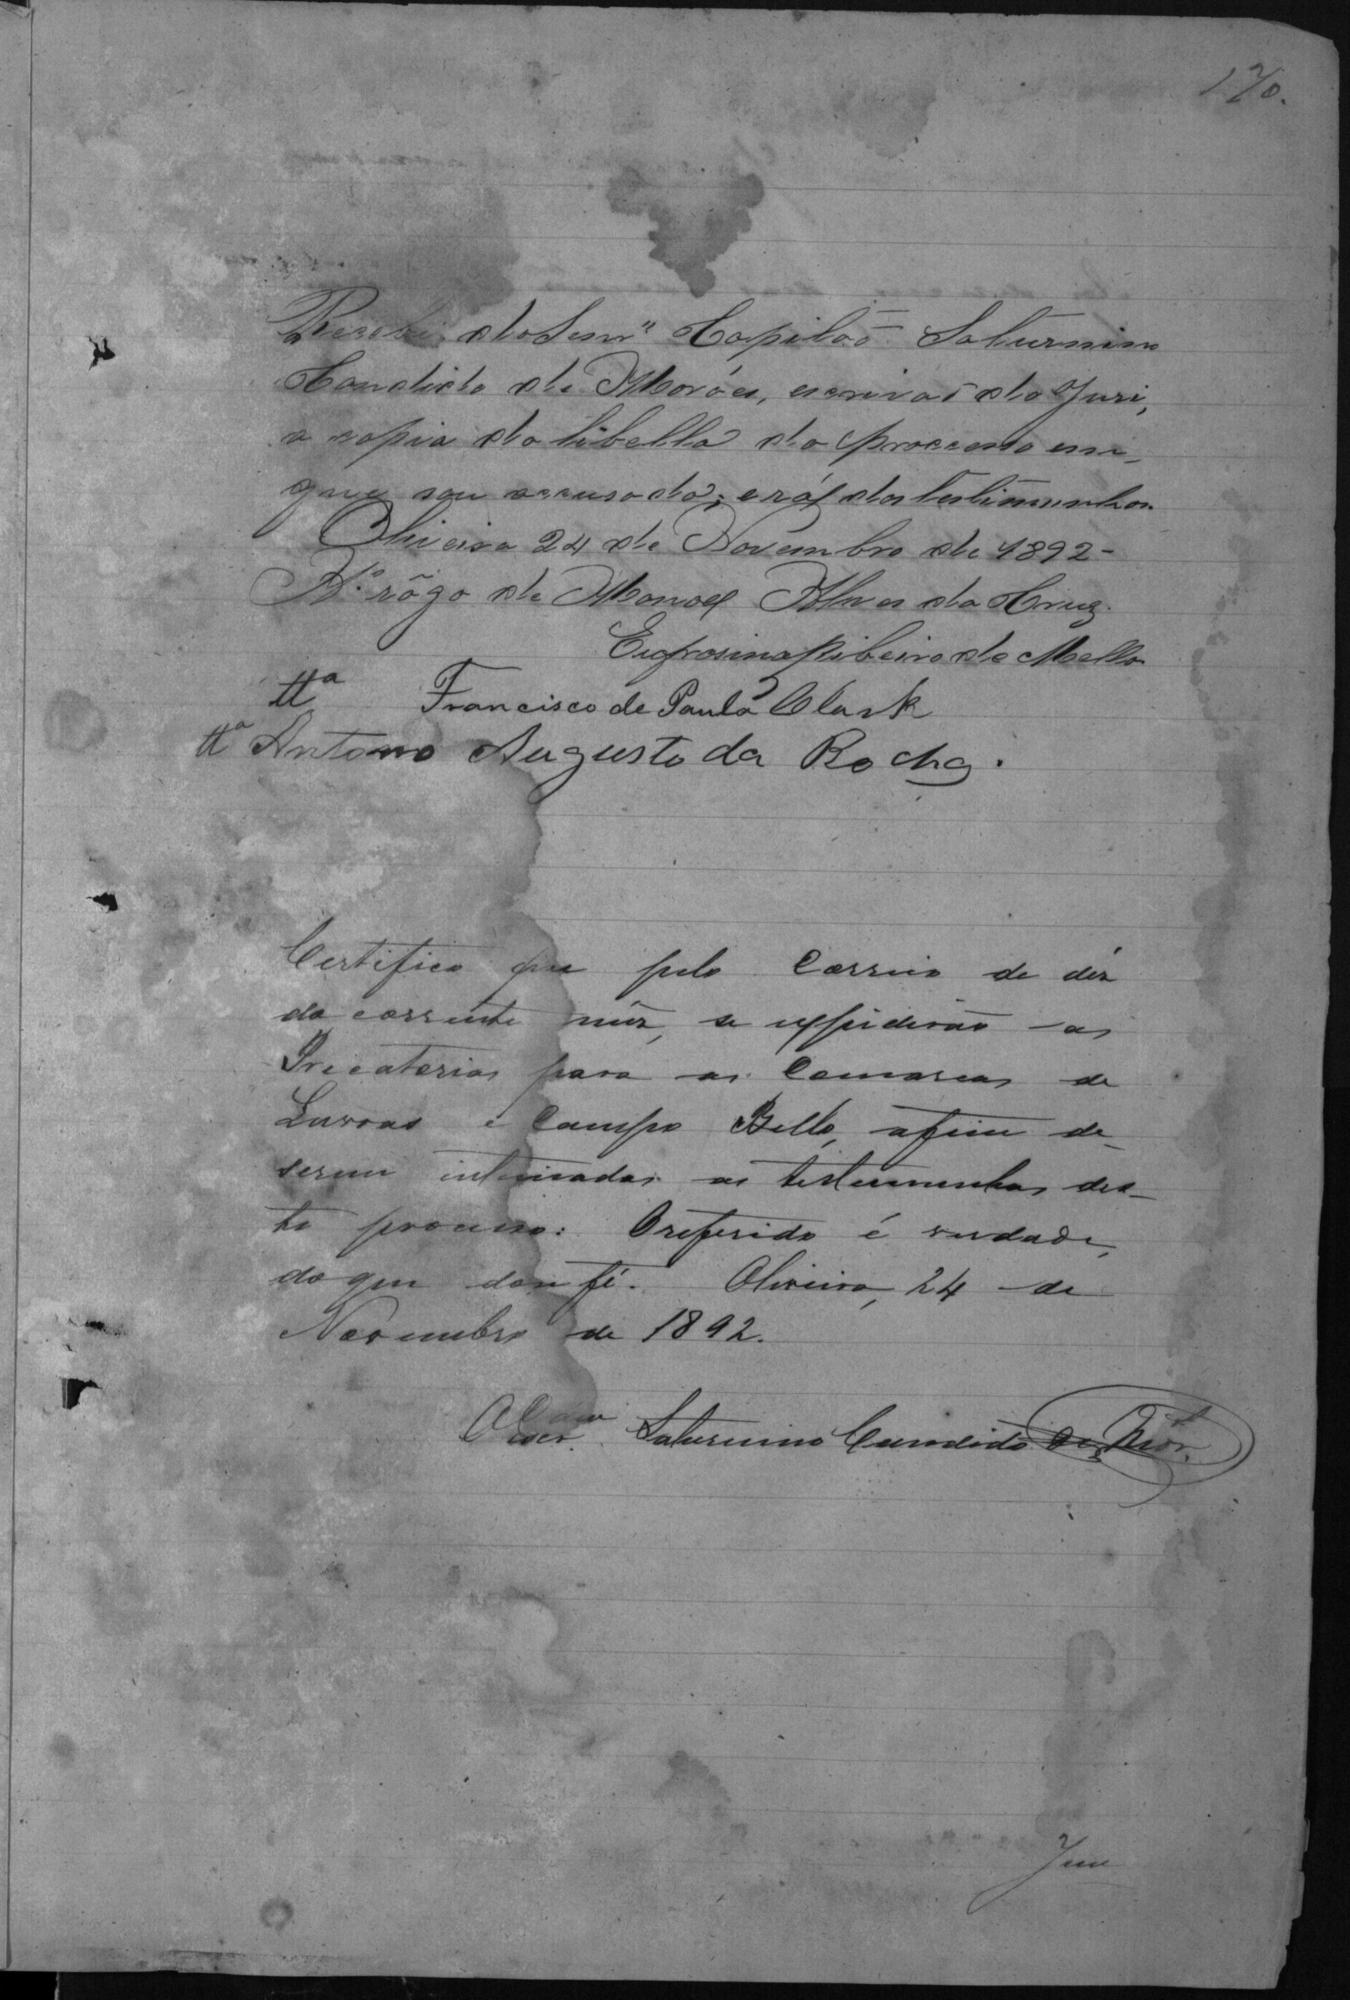 170.
Recebi do Senr. Capitão Saturnino
Candido de Moráes, escrivão do Jury,
a copia do libello do processo em
que sou accusado; e ról das testimunhas.
Oliveira 24 de Novembro de 1892-
A rôgo de Manoel Alves da Cruz.
Eufrosino Ribeiro de Mello
ttª Francisco de Paula Clark
ttª Antonio Augusto da Rocha.
Certifico que pelo Correio de déz
do corrente mêz, se expidirão as
Precatorias para as Comarcas de
Lavras e Campo Bello, afim de
serem intimadas as testemunhas des-
te processo: O referido é verdade,
do que dou fé. Oliveira, 24 de
Novembro de 1892.
O Escr. Saturnino Candido de